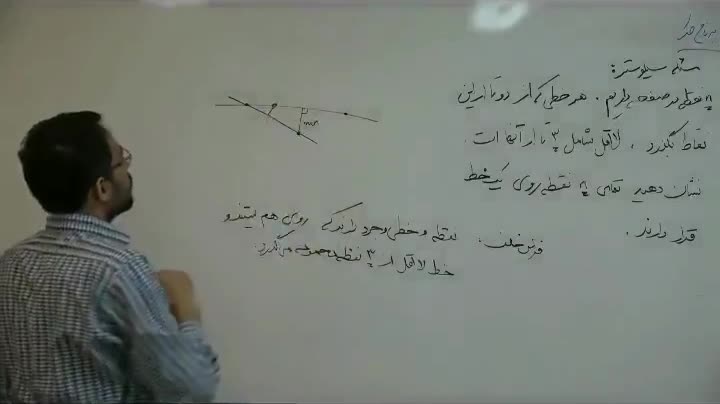 برهان خلف
مسئله سیلوستر:
n نقطه در صفحه داریم. هر خطی که از دو تا از این
نقاط بگذرد، لااقل شامل ۳ تا از آنها است.
نشان دهید تمامی n نقطه روی یک خط
قرار دارند.
فرض خلف، نقطه و خطی وجود دارند که روی هم نیستند و
خط لااقل از ۳ نقطه مجموعه می‌گذرد.
min